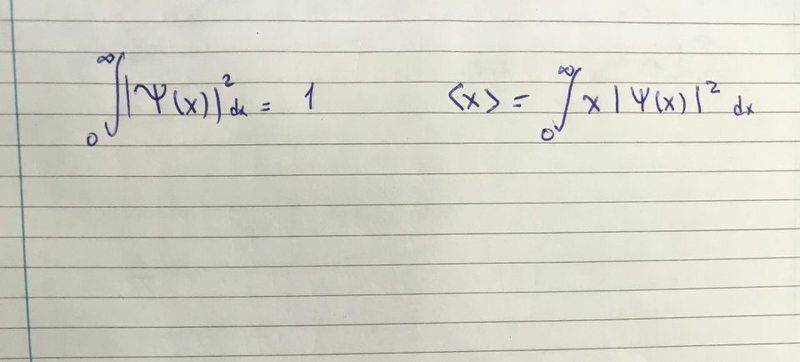 ∫₀^∞ |Ψ(x)|² dx = 1    ⟨x⟩ = ∫₀^∞ x |Ψ(x)|² dx